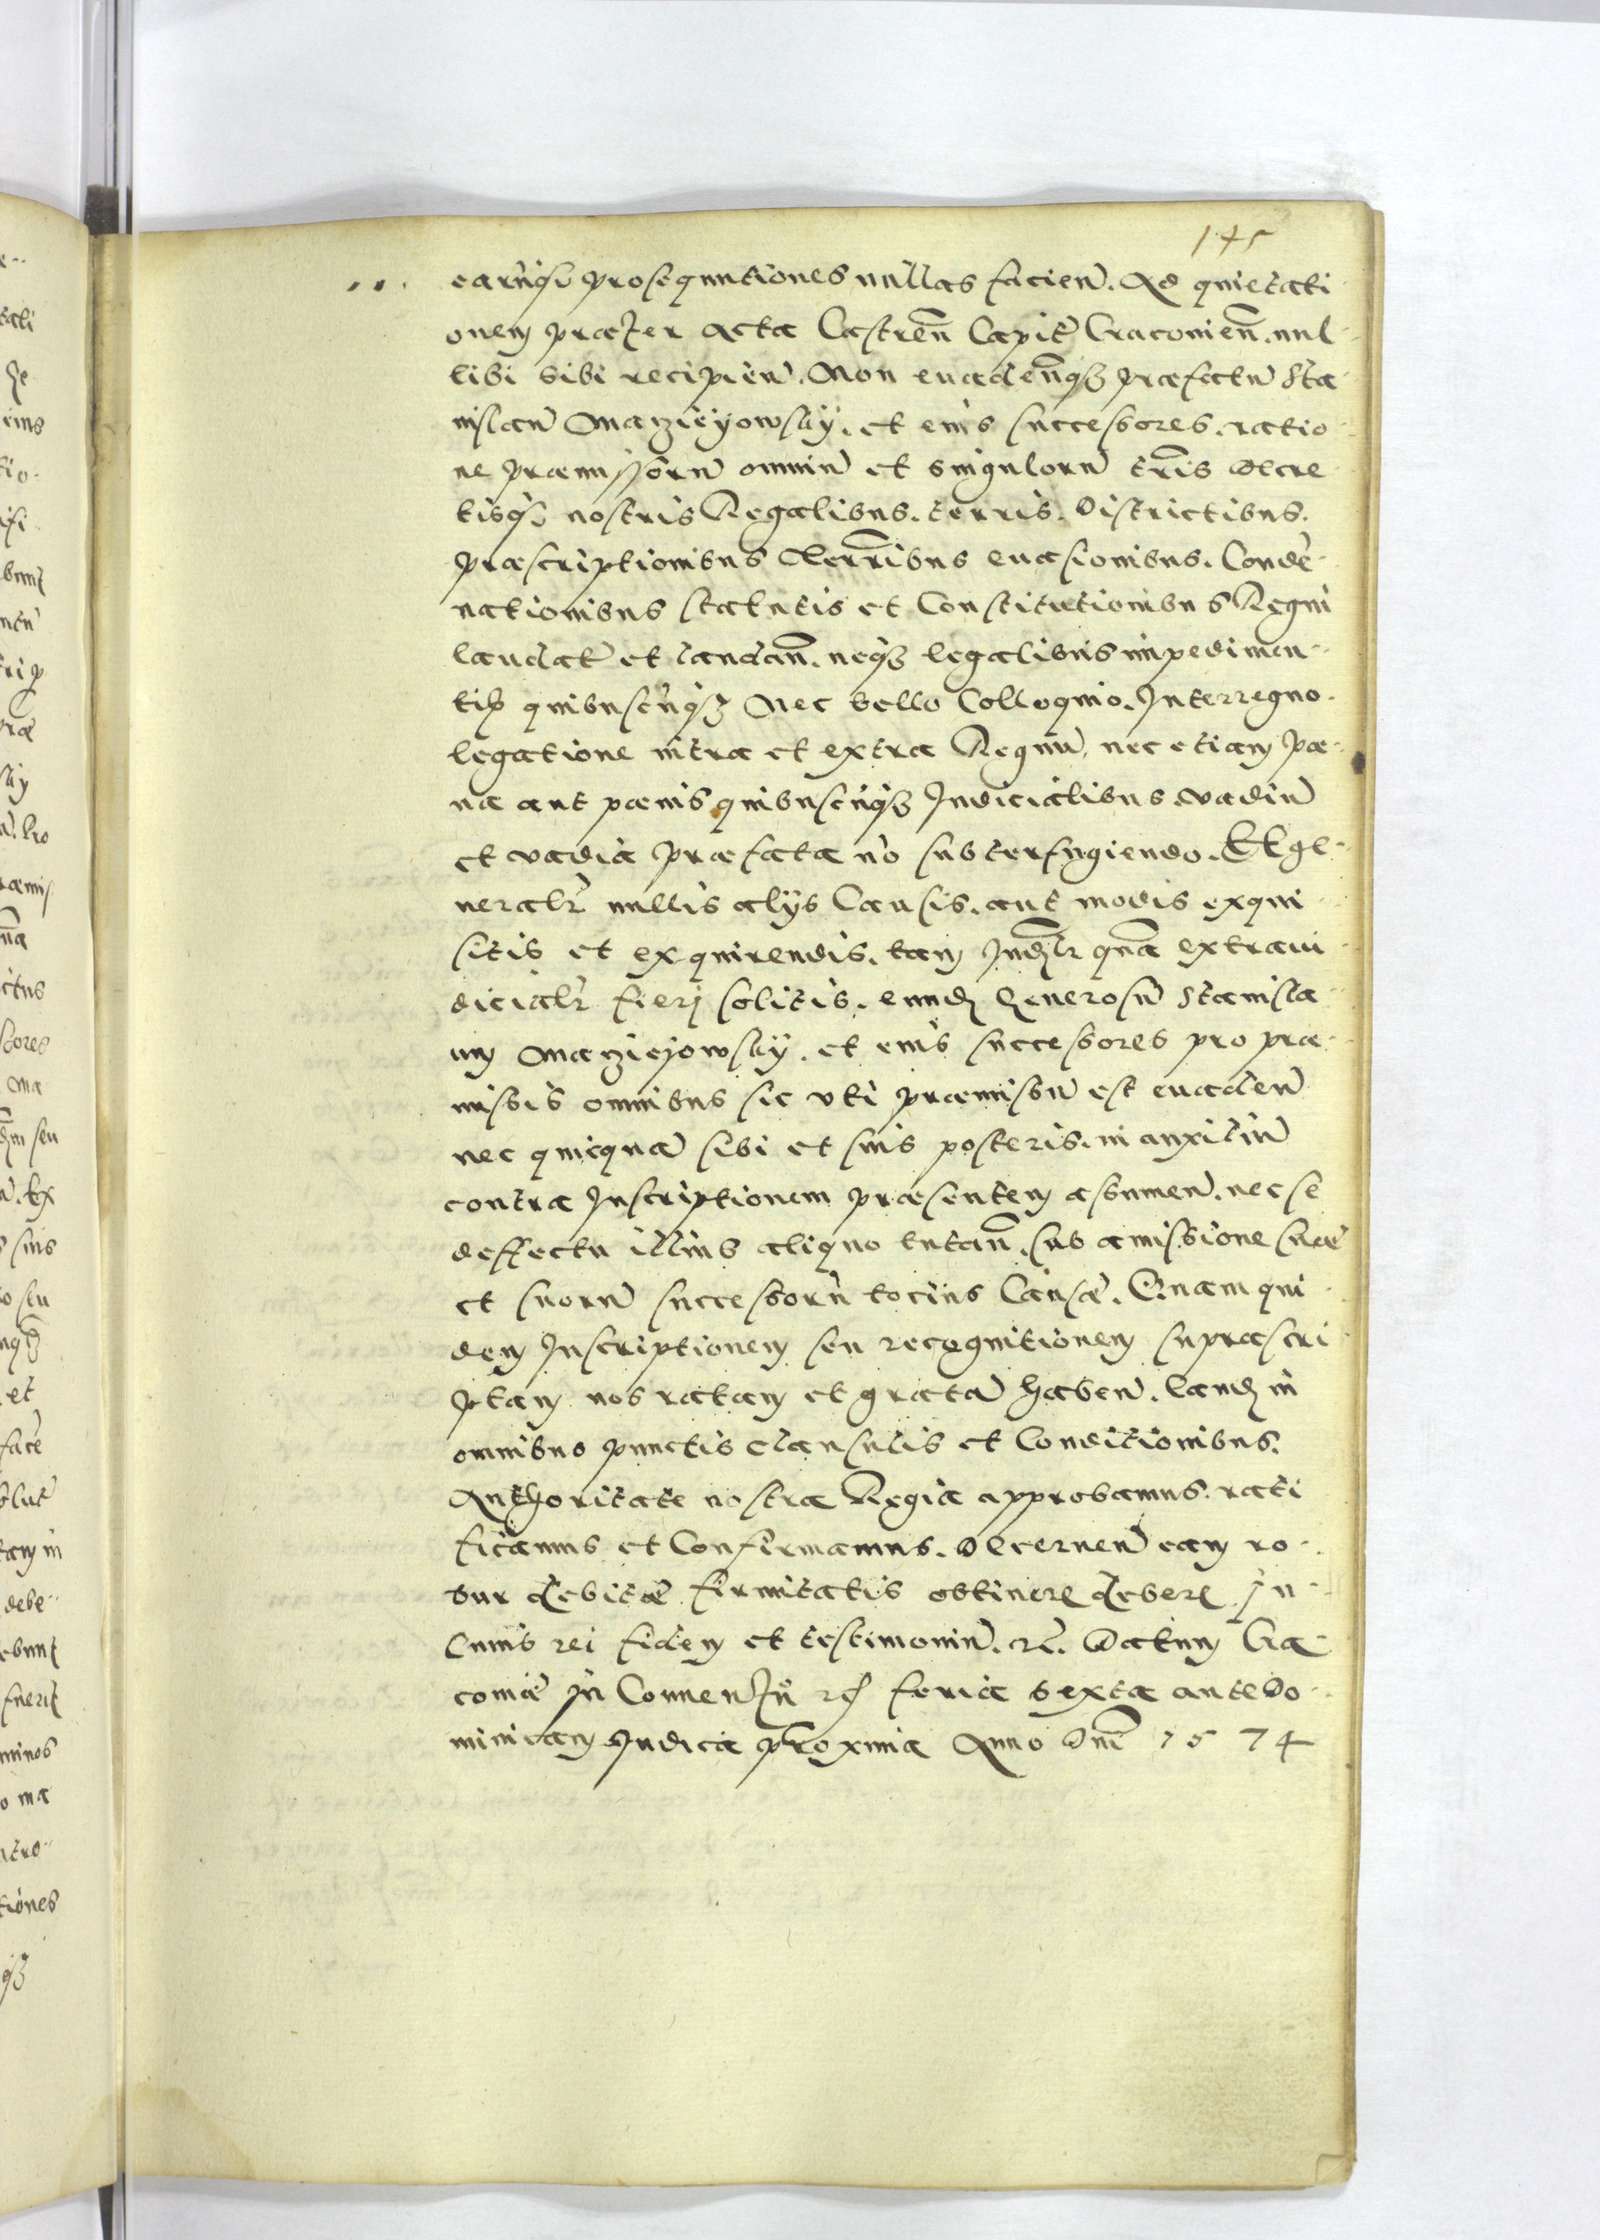 145
earūqȝ prosequutiones nullas facień. Ad quietati
onem præter acta Castreñ Capit̄ Cracouieñ. nul
libi sibi recipień. Non euadeñqȝ præfatū Sta
nislaū Maczieyowsky. et eius successores. ratio
ne præmissorū omniū et singulorū tris decre
tisqȝ nostris Regalibus. terris. Districtibus.
præscriptionibus terribus euasionibus. Conde
nationibus statutis et Constitutionibus Regni
laudat et laudañ. neqȝ legalibus impedimen
tis quibuscūqȝ Nec bello Colloquio. Interregno.
legatione intra et extra Regnū. nec etiam pæ
na aut pænis quibuscūqȝ Iudicialibus vadiū
et vadia præfata nō subterfugiendo. Et ge
neralr nullis alys Causis. aut modis exqui
sitis et exquirendis. tam Iudlr quā extraiu
dicialr fierj solitis. eund Generosū Stanisla
um Maczieiowsky. et eius successores pro præ
missis omnibus sic vti præmissū est euadeń
nec quicquā sibi et suis posteris. in auxiliū
contra Inscriptionem præsentem assumeń. nec se
deffectu illius aliquo tutañ. sub amissione suæ
et suorū successorū tocius Causæ. Quam qui
dem Inscriptionem seu recognitionem supræscri
ptam nos ratam et gratā habeń. laud in
omnibus punctis clausulis et Conditionibus.
Authoritate nostra Regia approbamus. rati
ficamus et Confirmamus. Decerneń eam ro
bur debitæ firmitatis obtinere debere. In
Cuius rei fidem et testimoniū. rc̄. Datum Cra
couiæ In Conuen feria sexta ante Do
minicam Iudica proxima Anno Dni 1574